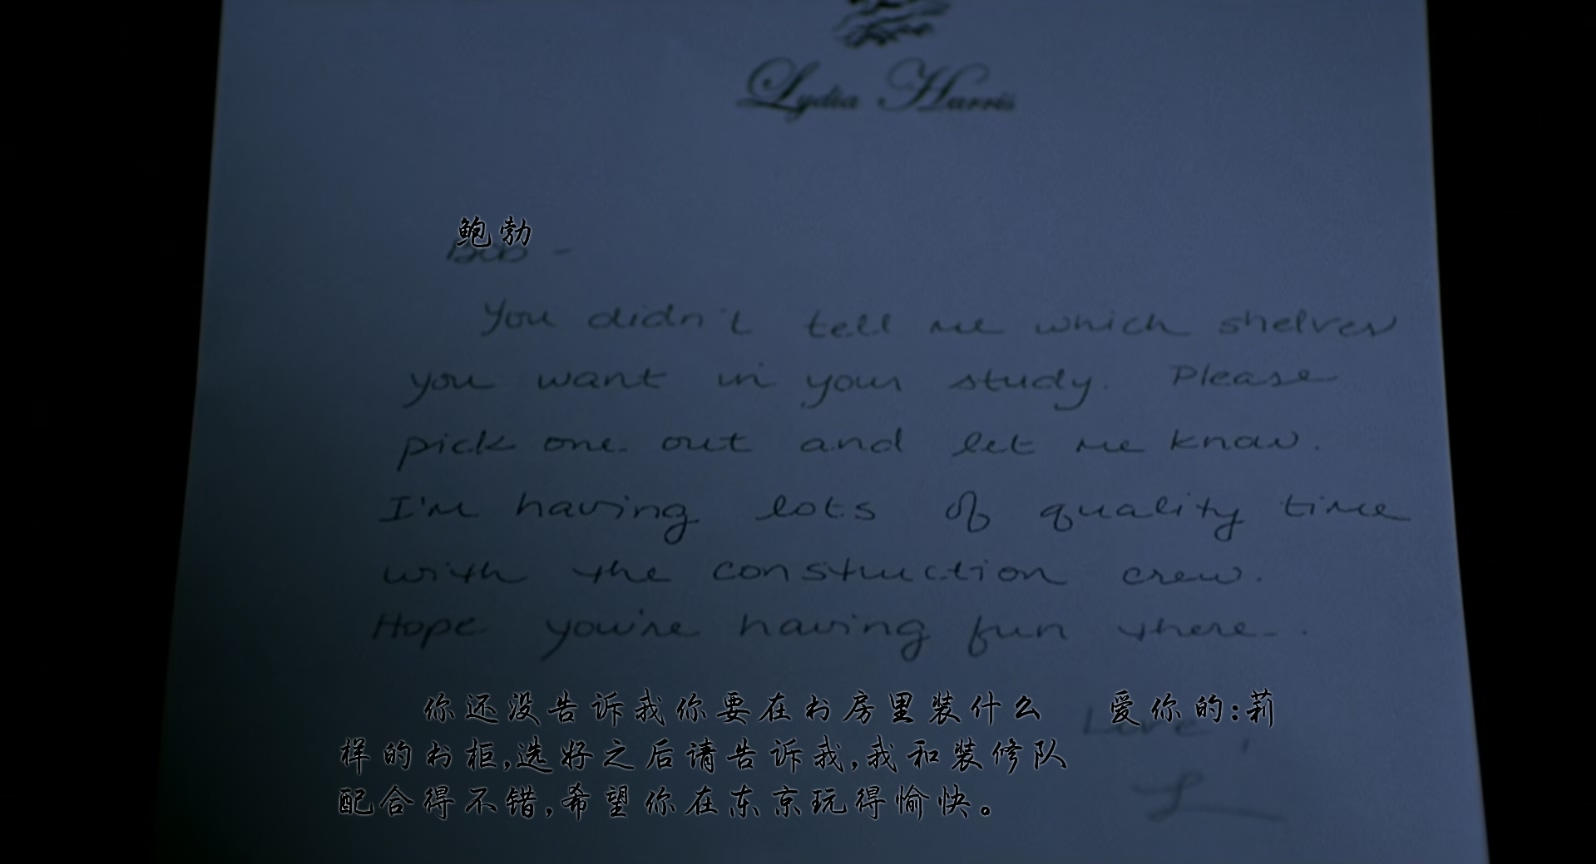 Lydia Harris
鲍勃
Bob -
You didn't tell me which shelves
you want in your study. Please
pick one out and let me know.
I'm having lots of quality time
with the construction crew.
Hope you're having fun there.
Love,
L
你还没告诉我你要在书房里装什么
样的书柜,选好之后请告诉我,我和装修队
配合得不错,希望你在东京玩得愉快。
爱你的:莉